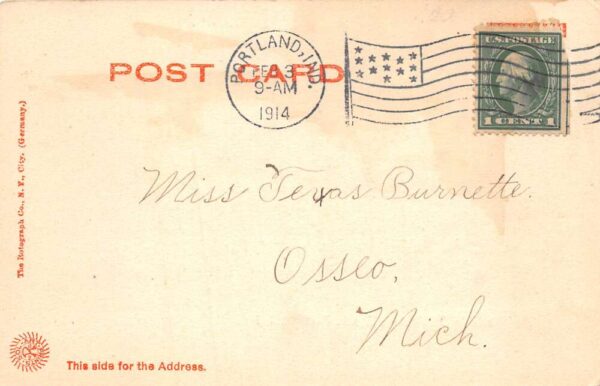 POST CARD
PORTLAND, IND.
FEB 3
9-AM
1914
U.S. POSTAGE
1 CENT 1
Miss Texas Burnette.
Osseo,
Mich.
The Rotograph Co., N. Y., City. (Germany.)
This side for the Address.